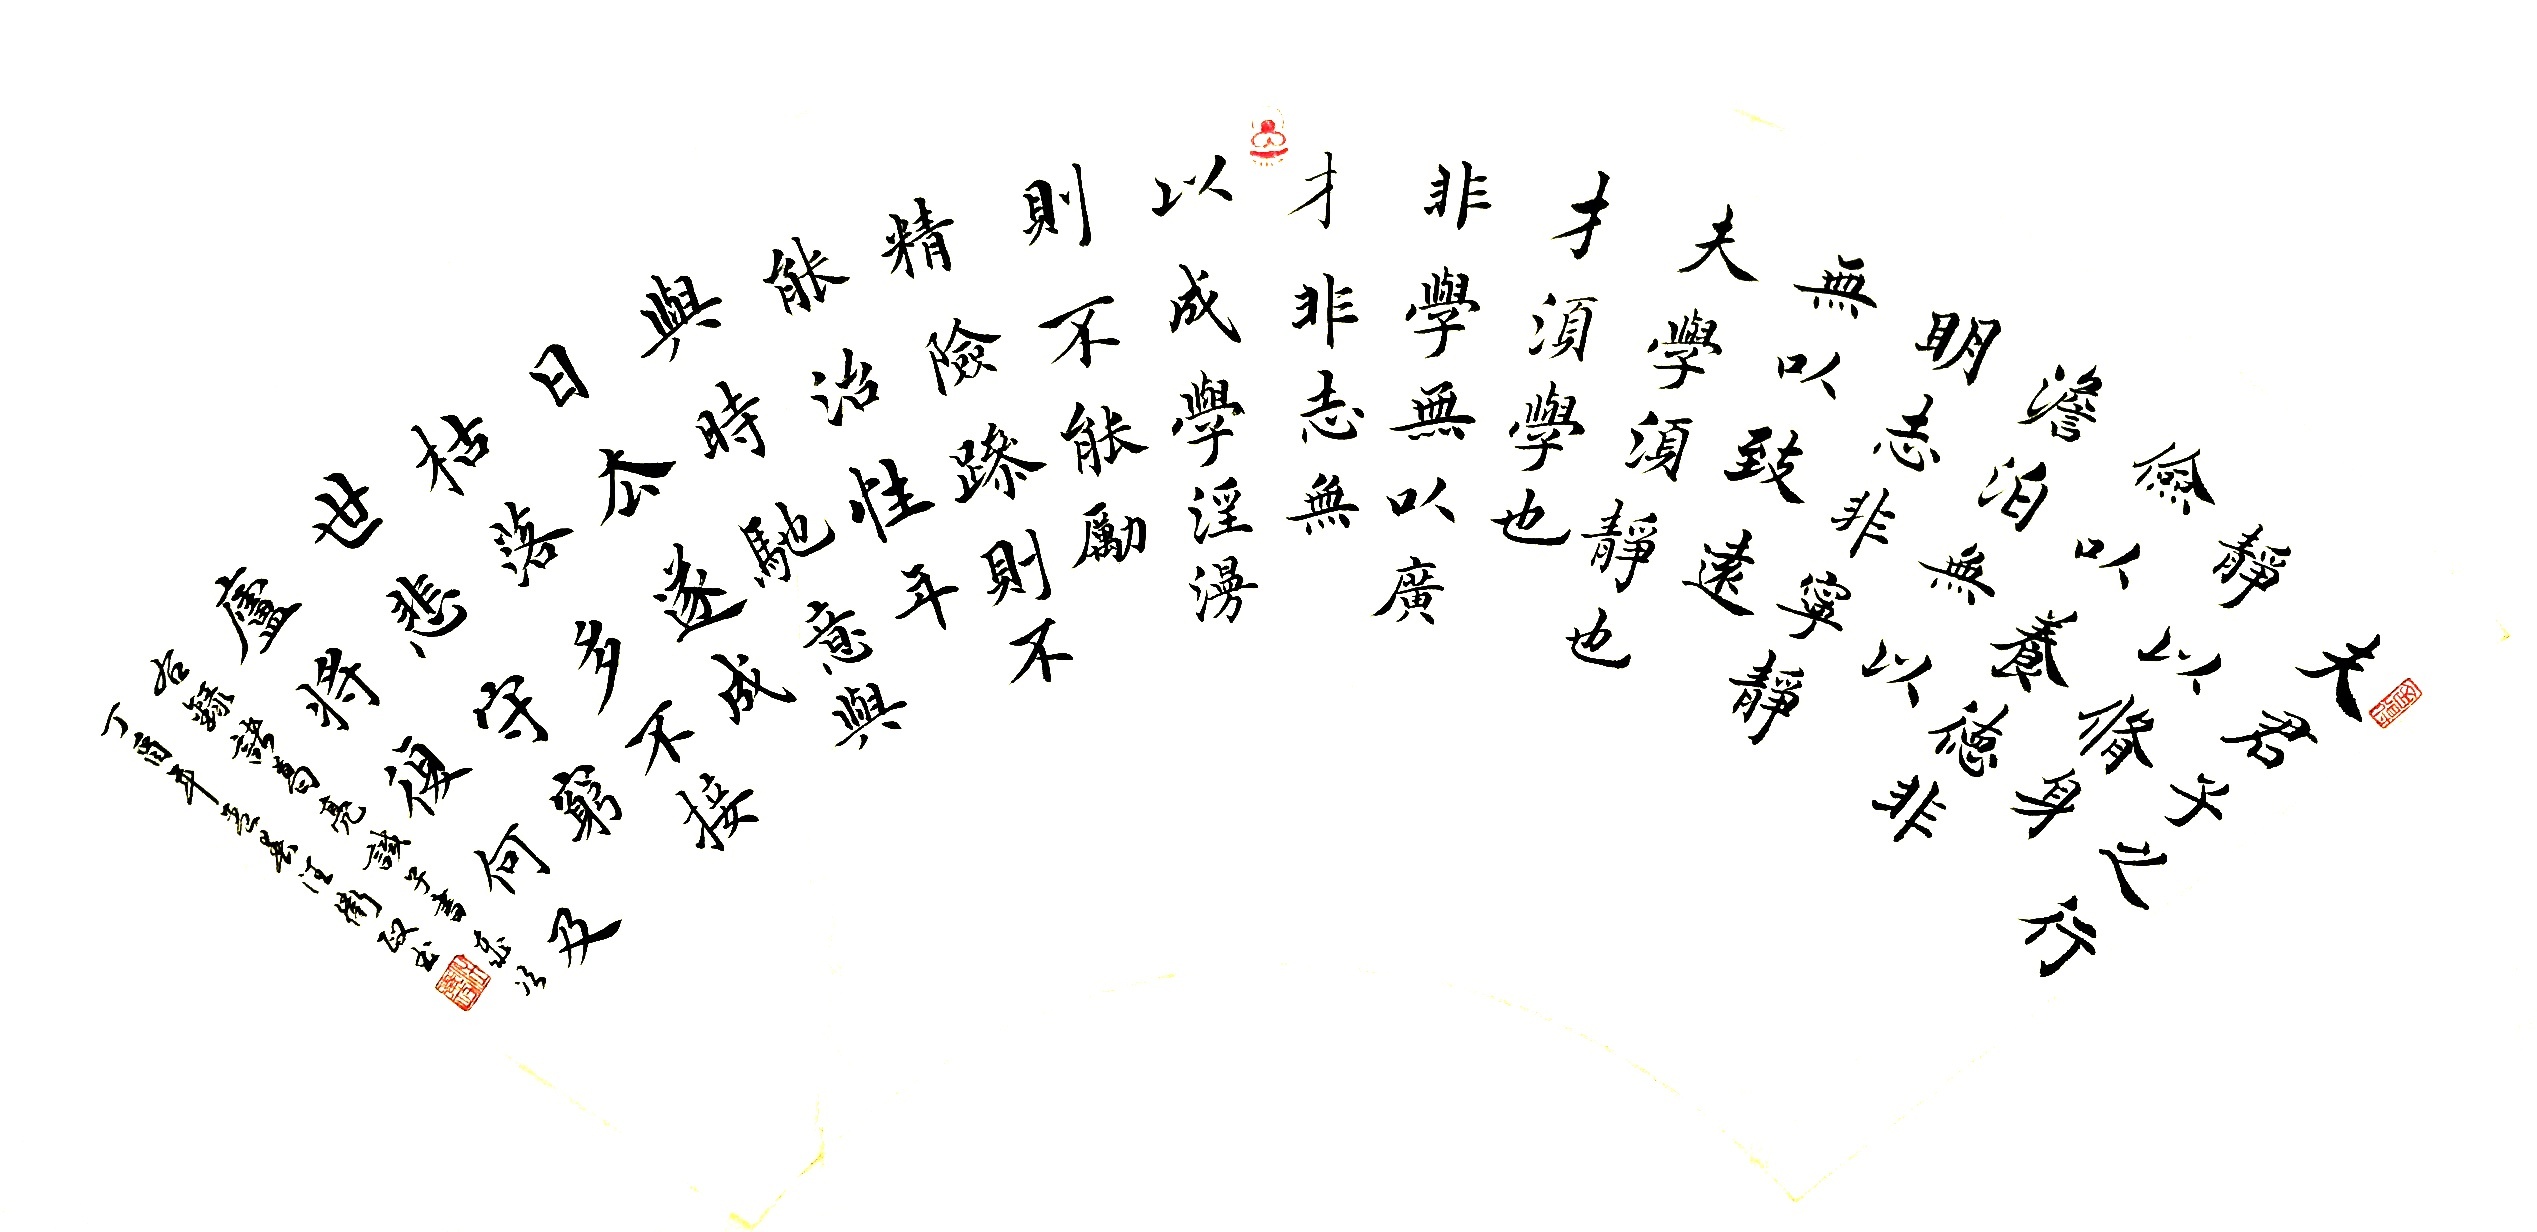 夫君子之行
靜以修身
儉以養德非
澹泊無以
明志非寧靜
無以致遠
夫學須靜也
才須學也
非學無以廣
才非志無
以成學淫漫
則不能勵
精險躁則不
能治性年
與時馳意與
日去遂成
枯落多不接
世悲守窮
廬將復何及
右錄諸葛亮誡子書
丁酉年汪衛政书